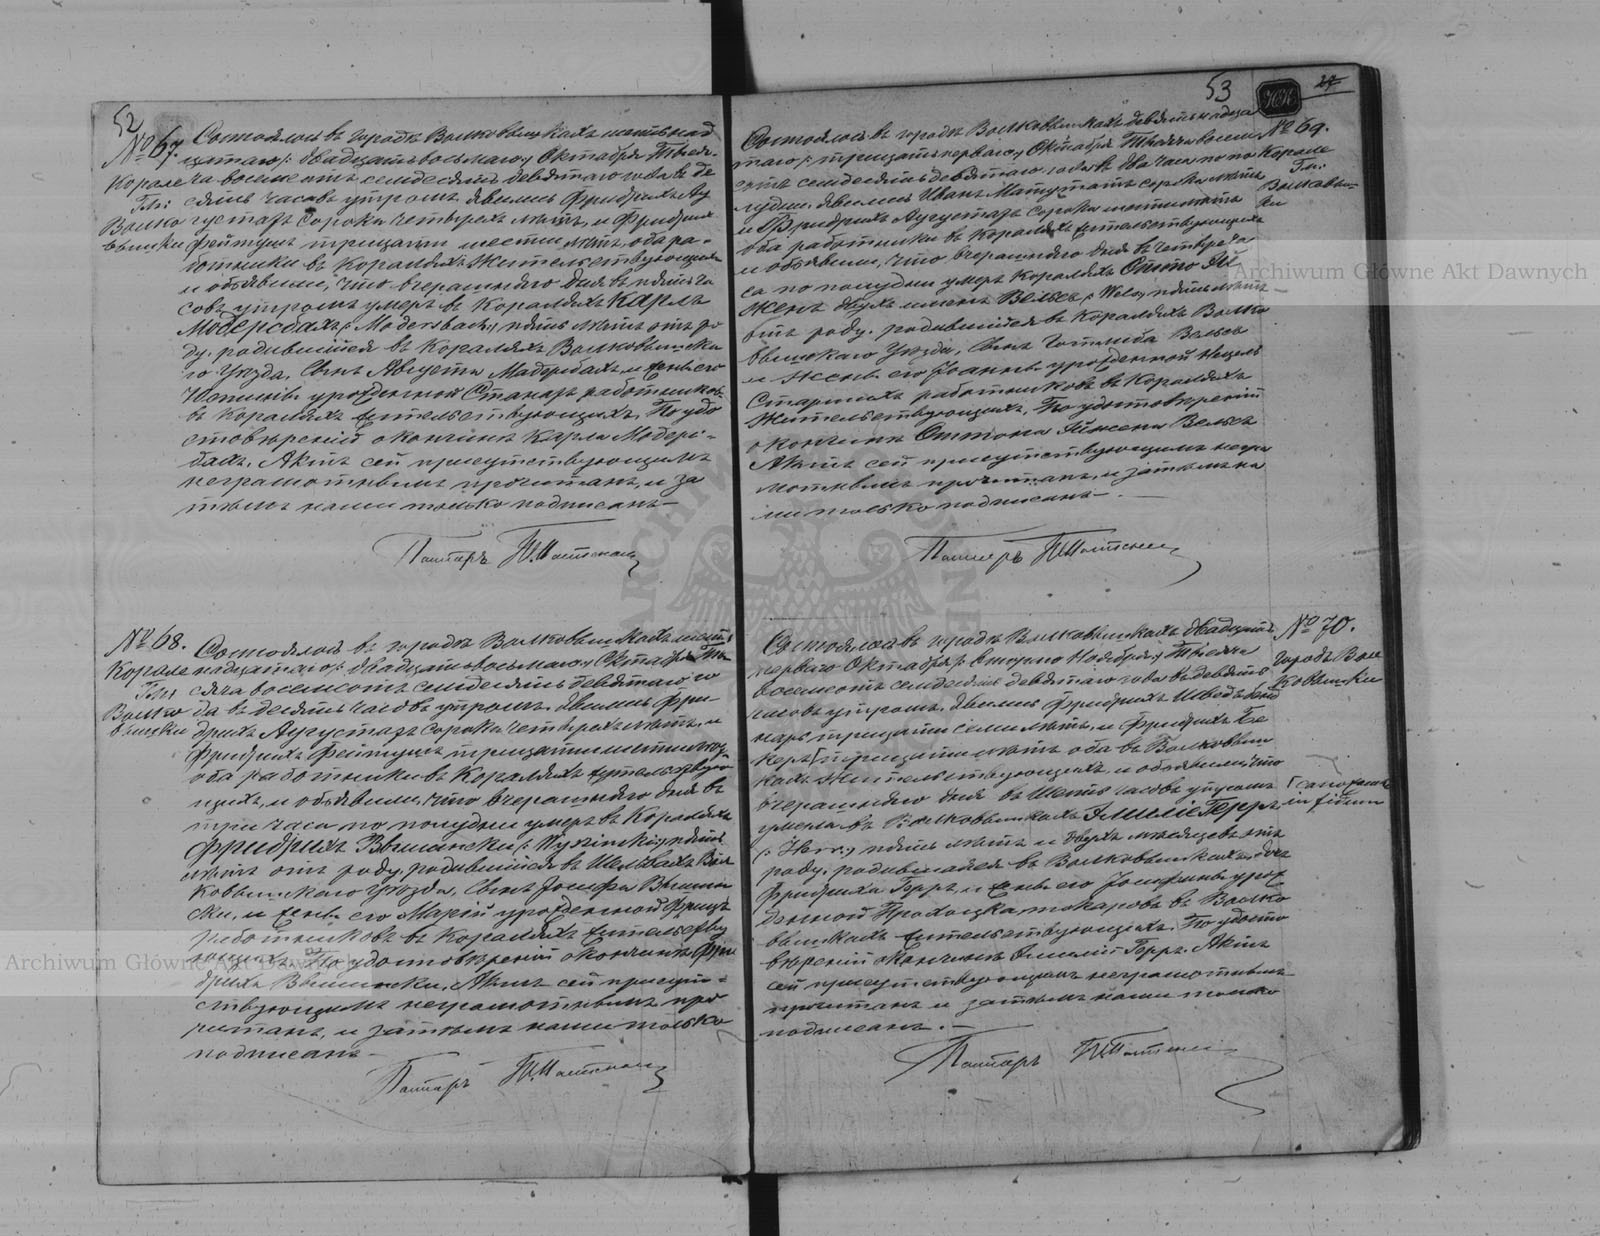 52
№ 67.
Корале
Гм:
Волко
вышки
Состоялось въ городѣ Волковышкахъ шестьнад
цатаго /: двадцать восьмаго :/ Октября Тыся-
ча восемьсотъ семдесятъ девятаго года въ де
сять часовъ утромъ. явились Фридрихъ Ау
густатъ сорока четырехъ лѣтъ, и Фридрихъ
Фейтушъ тридцати шести лѣтъ, оба ра-
ботники въ Кораляхъ жительствующіе
и объявили, что вчерашняго дня въ пять ча
совъ утромъ умеръ въ Кораляхъ Карлъ
Модерсбахъ /: Modersbach :/ пять лѣтъ отъ ро
ду, родившійся въ Кораляхъ Волковышска
го Уѣзда, сынъ Августа Модерсбахъ и жены его
урожденной работниковъ
въ Кораляхъ жительствующихъ. По удо
стовѣреніи о кончинѣ Карла Модерс-
бахъ, Актъ сей присутствующимъ
неграмотнымъ прочитанъ, и за
тѣмъ нами только подписанъ
Пасторъ
№ 68.
Корале
Гм:
Волко
вышки
Состоялось въ городѣ Волковышкахъ шест
надцатаго /: двадцать восьмаго :/ Октября Ты
сяча восемьсотъ семдесятъ девятаго го
да въ десять часовъ утромъ. явились Фри-
дрихъ Аугустатъ сорока четырехъ лѣтъ, и
Фридрихъ Фейтушъ тридцати шести лѣтъ,
оба работники въ Кораляхъ жительствую
щіе, и объявили, что вчерашняго дня въ
три часа по полудни умеръ въ Кораляхъ
Фридрихъ Вышински /: :/ пять
лѣтъ отъ роду, родившійся въ Вол
ковышскаго Уѣзда, сынъ Іосифа Вышин
ски, и жены его Маріи урожденной Фрицъ
работниковъ въ Кораляхъ жительству
ющихъ. По удостовѣреніи о кончинѣ Фри
дриха Вышински, Актъ сей присут-
ствующимъ неграмотнымъ про
читанъ, и затѣмъ нами только
подписанъ
Пасторъ
53
27
№ 69.
Корале
Гм:
Волковыш
ки
Состоялось въ городѣ Волковышкахъ девятьнадца
таго /: тридцать перваго :/ Октября Тысяча восем
сотъ семдесятъ девятаго года въ два часа по по
лудни. явились Иванъ Матутатъ сорока лѣтъ
и Фридрихъ Аугустатъ сорока лѣтъ
оба работники въ Кораляхъ жительствующіе
и объявили, что вчерашняго дня въ четыре ча
са по полудни умеръ въ Кораляхъ Отто Эй
женъ двухъ именъ Вельсъ /: Wels :/ пять лѣтъ
отъ роду, родившійся въ Кораляхъ Волко
вышскаго Уѣзда, сынъ Готлиба Вельсъ
и жены его Іоанны урожденной
работниковъ въ Кораляхъ
жительствующихъ. По удостовѣреніи
о кончинѣ Оттона Эйжена Вельсъ
Актъ сей присутствующимъ негра
мотнымъ прочитанъ, и затѣмъ на
ми только подписанъ
Пасторъ
№ 70.
городъ Вол
ковышки
Состоялось въ городѣ Волковышкахъ двадцать
перваго Октября /: втораго Ноября :/ Тысяча
восемсотъ семдесятъ девятаго года въ девять
часовъ утромъ. явились Фридрихъ
тридцати семи лѣтъ, и Фридрихъ Бе
керъ тридцати лѣтъ оба въ Волковыш
кахъ жительствующіе, и объявили, что
вчерашняго дня въ шесть часовъ утромъ
умерла въ Волковышкахъ Эмилія Герръ
/: Herr :/ пять лѣтъ и двухъ мѣсяцевъ отъ
роду, родившаяся въ Волковышкахъ, дочь
Фридриха Герръ, и жены его Іозефины урож
денной токаровъ въ Волко
вышкахъ жительствующихъ. По удосто
вѣреніи о кончинѣ Эмиліи Герръ. Актъ
сей присутствующимъ неграмотнымъ
прочитанъ и затѣмъ нами только
подписанъ.
Пасторъ
Archiwum Główne Akt Dawnych
Archiwum Główne Akt Dawnych